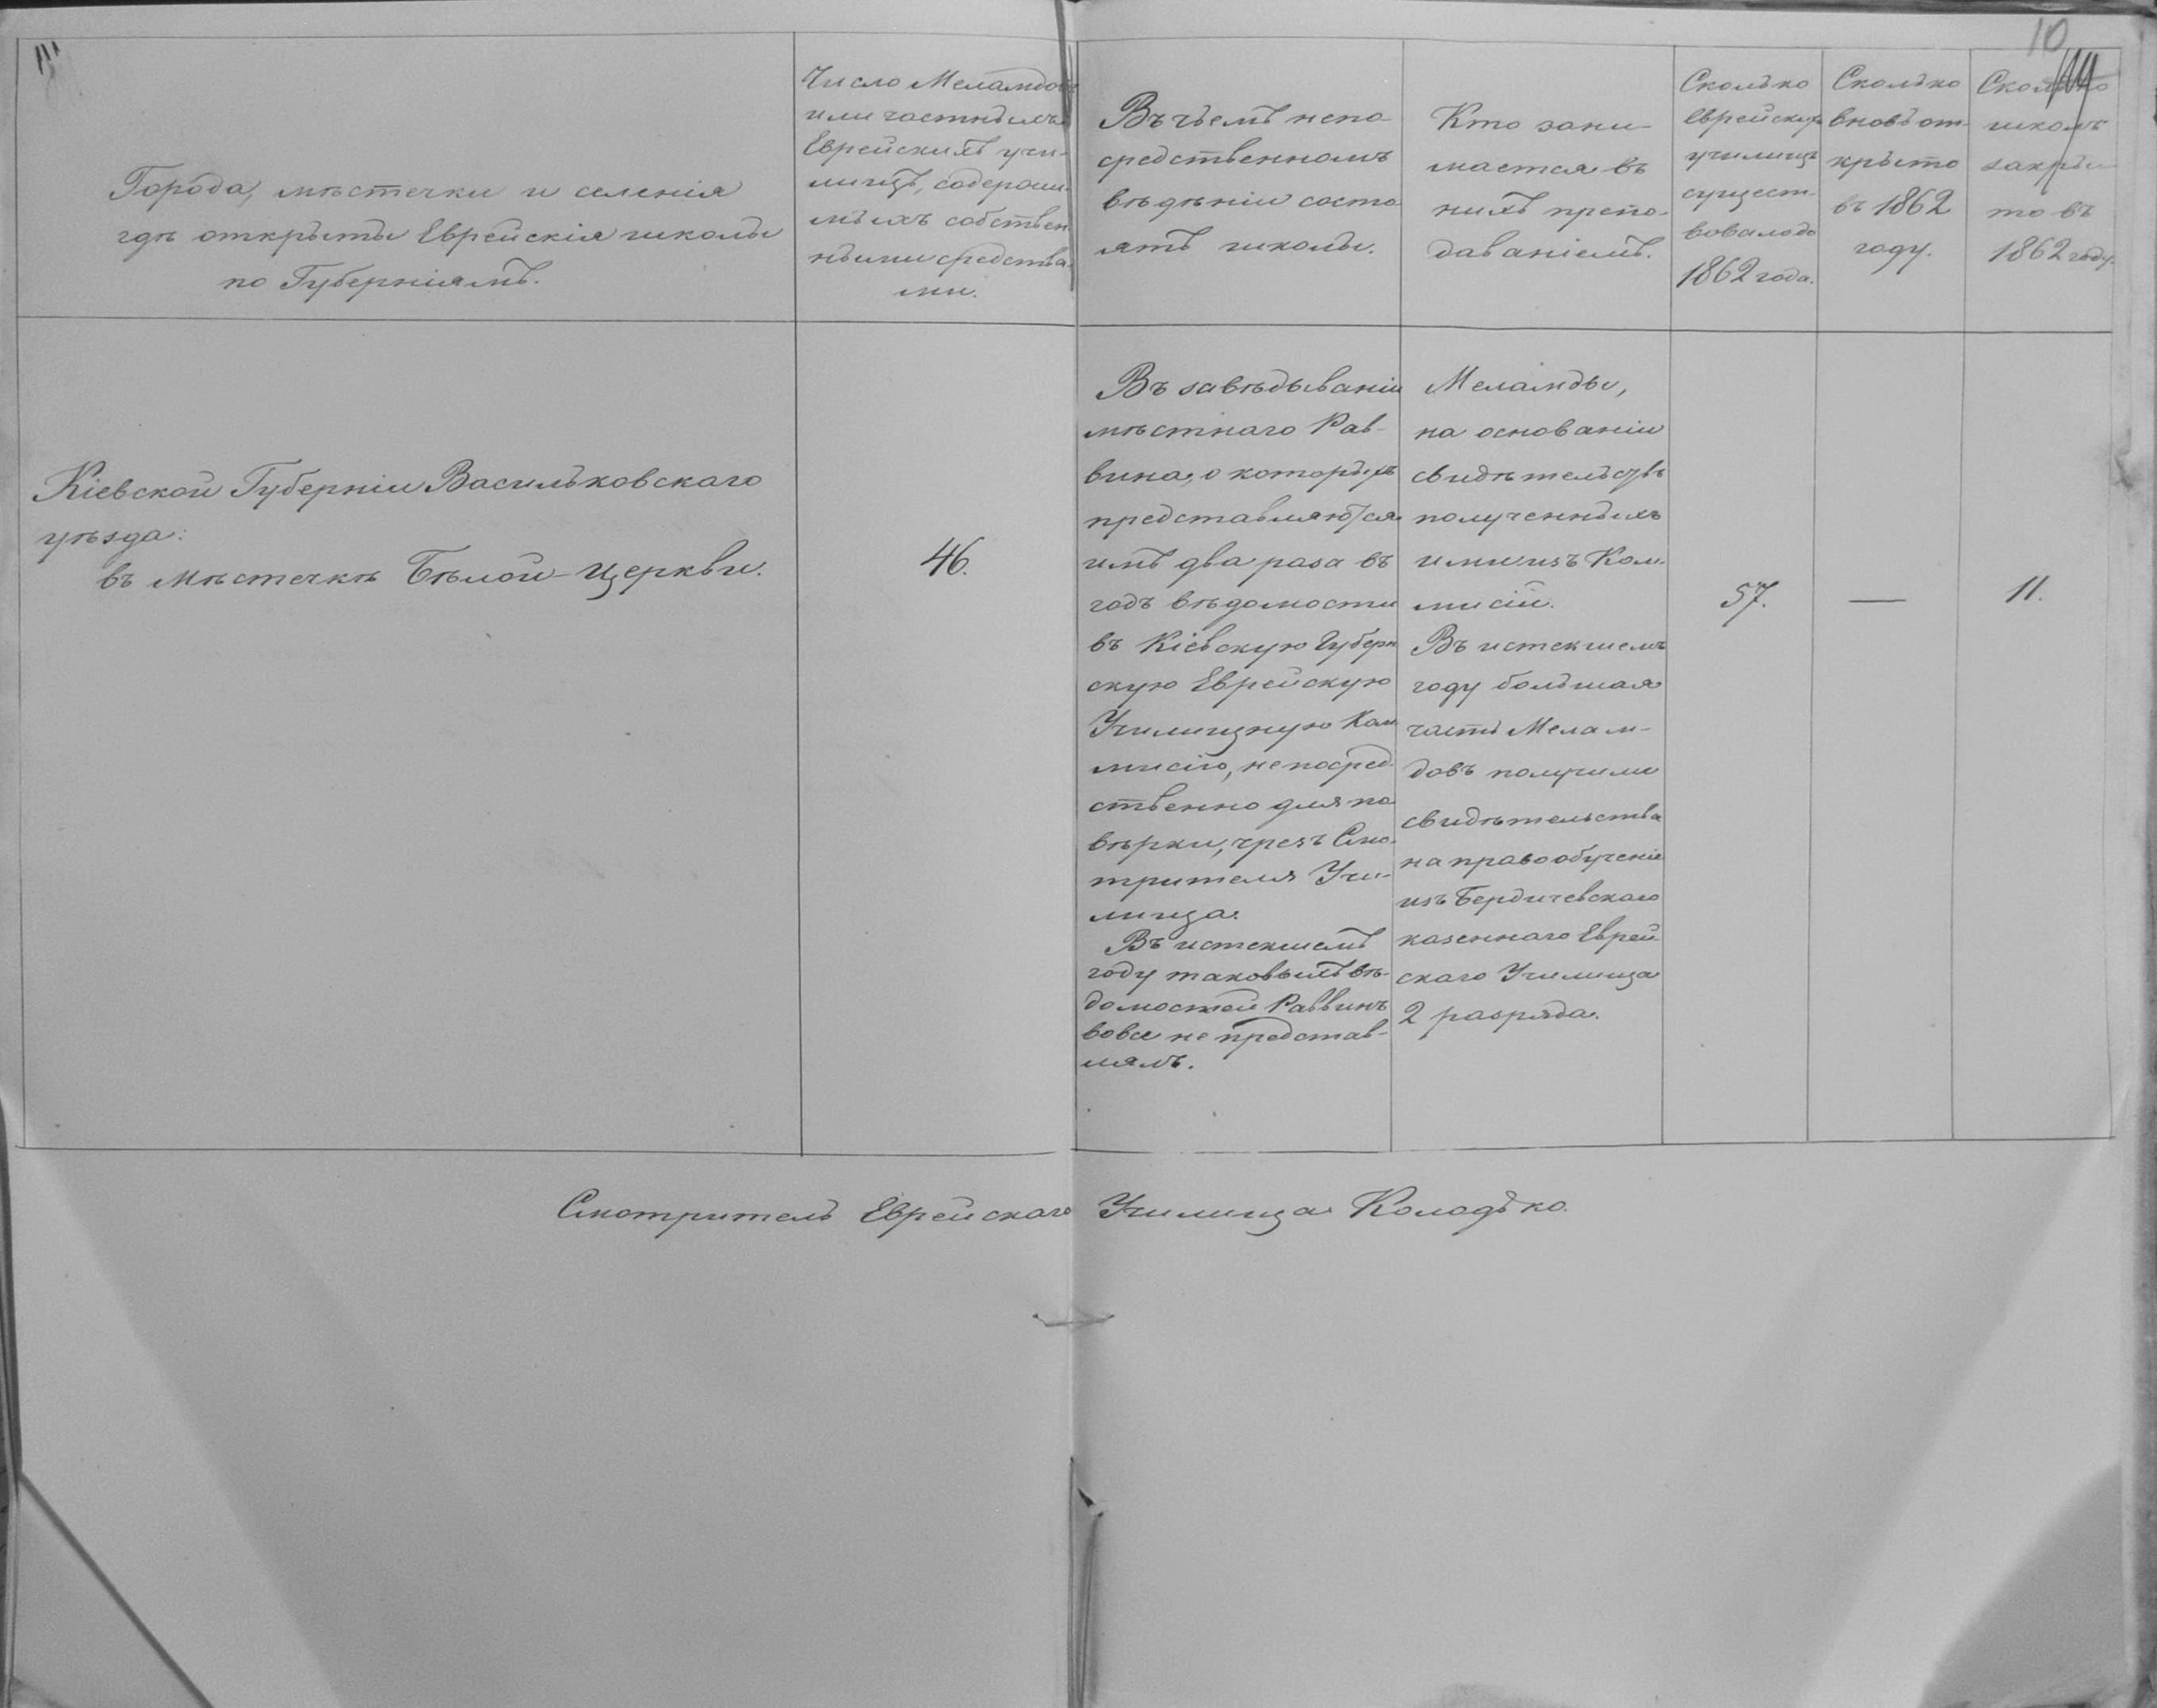 10
Города, мѣстечки и селенія
гдѣ открыты Еврейскія школы
по Губерніямъ.
Число Меламдовъ
или частныхъ
Еврейскихъ учи-
лищъ, содержи-
мыхъ собствен-
ными средства-
ми.
Въ чьемъ непо-
средственномъ
вѣдѣніи состо
ятъ школы.
Кто зани-
мается въ
нихъ препо-
даваніемъ.
Сколько
Еврейскихъ
училищъ
сущест-
вовало до
1862 года.
Сколько
вновь от-
крыто
въ 1862
году.
Сколько
школъ
закры-
то въ
1862 году.
Кіевской Губерніи Васильковскаго
уѣзда:
въ мѣстечкѣ Бѣлой-Церкви.
46.
Въ завѣдываніи
мѣстнаго Рав-
вина, о которыхъ
представляются
имъ два раза въ
годъ вѣдомости
въ Кіевскую Губерн
скую Еврейскую
Училищную Ком
мисію, непосред-
ственно для по
вѣрки, чрезъ Смо-
трителя Учи-
лища.
Въ истекшемъ
году таковыхъ вѣ-
домостей Раввинъ
вовсе не представ-
лялъ.
Меламды,
на основаніи
свидѣтельствъ
полученныхъ
ими изъ Ком-
мисій.
Въ истекшемъ
году большая
часть Мелам-
довъ получили
свидѣтельства
на право обученія
изъ Бердичевскаго
казеннаго Еврей-
скаго Училища
2 разряда.
57.
—
11.
Смотритель Еврейскаго Училища Колодько.